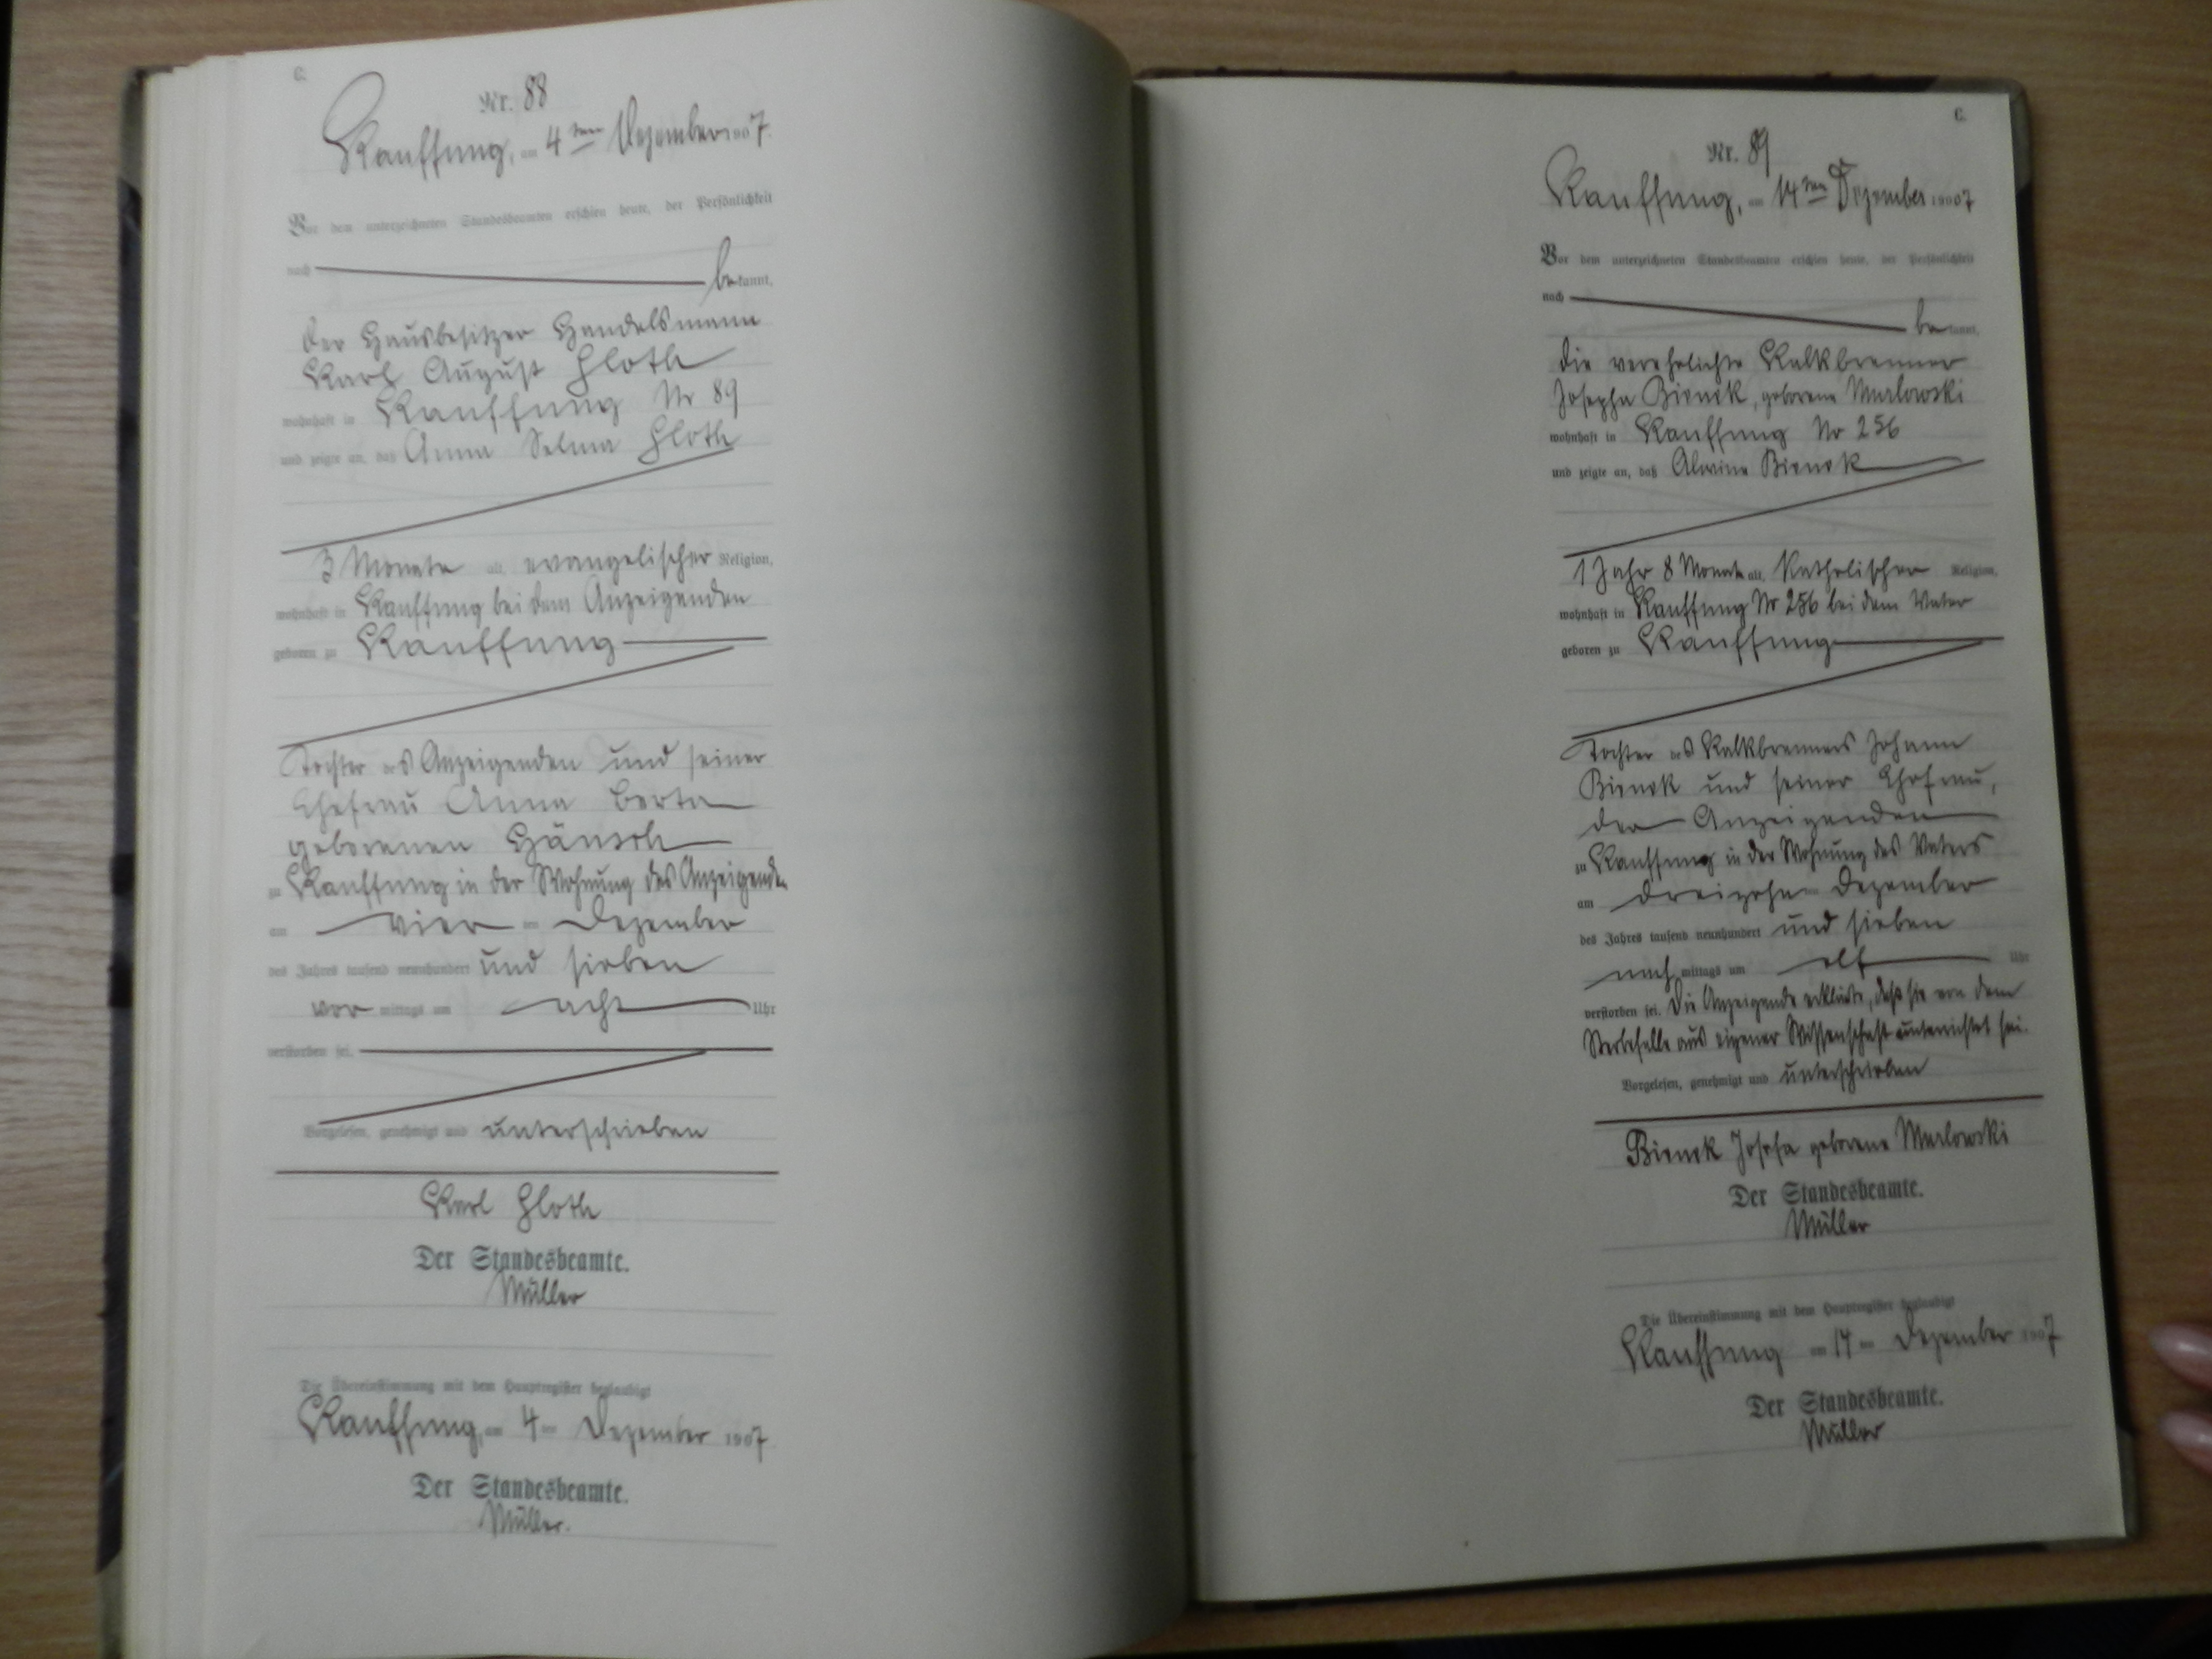 C.
Nr. 88
Kauffung, am 4ten Dezember 1907.
Vor dem unterzeichneten Standesbeamten erschien heute, der Persönlichkeit
nach bekannt,
der Hausbesitzer Handelsmann
Karl August Floth
wohnhaft in Kauffung Nr 89
und zeigte an, daß Anna Selma Floth
3 Monate alt, evangelischer Religion,
wohnhaft in Kauffung bei dem Anzeigenden
geboren zu Kauffung
Tochter des Anzeigenden und seiner
Ehefrau Anna Berta
geborenen Hänsch
zu Kauffung in der Wohnung des Anzeigenden
am vierten Dezember
des Jahres tausend neunhundert und sieben
vormittags um acht Uhr
verstorben sei.
Vorgelesen, genehmigt und unterschrieben
Karl Floth
Der Standesbeamte.
Müller
Die Übereinstimmung mit dem Hauptregister beglaubigt
Kauffung, am 4ten Dezember 1907
Der Standesbeamte.
Müller.
C.
Nr. 89
Kauffung, am 14ten Dezember 1907
Vor dem unterzeichneten Standesbeamten erschien heute, der Persönlichkeit
nach bekannt,
die verehelichte Kalkbrenner
Josepha Bienek, geborene Marlowski
wohnhaft in Kauffung Nr 256
und zeigte an, daß Alwine Bienek
1 Jahr 8 Monate alt, katholischer Religion,
wohnhaft in Kauffung Nr 256 bei dem Vater
geboren zu Kauffung
Tochter des Kalkbrenners Johann
Bienek und seiner Ehefrau,
der Anzeigenden
zu Kauffung in der Wohnung des Vaters
am dreizehnten Dezember
des Jahres tausend neunhundert und sieben
nachmittags um elf Uhr
verstorben sei. Die Anzeigende erklärte, daß sie von dem
Sterbefalle aus eigener Wissenschaft unterrichtet sei.
Vorgelesen, genehmigt und unterschrieben
Bienek Josefa geborene Marlowski
Der Standesbeamte.
Müller
Die Übereinstimmung mit dem Hauptregister beglaubigt
Kauffung am 14ten Dezember 1907
Der Standesbeamte.
Müller